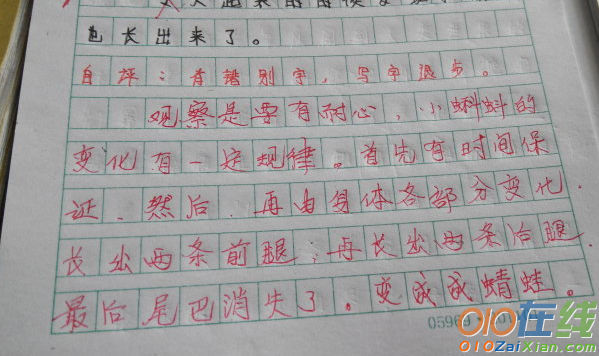 也长出来了。
自评:有错别字,写字退步。
观察是要有耐心,小蝌蚪的
变化有一定规律。首先有时间保
证、然后、再由身体各部分变化.
长出两条前腿;再长出两条后腿.
最后尾巴消失了。变成成蜻蛙。
05969
010在线
010ZaiXian.com